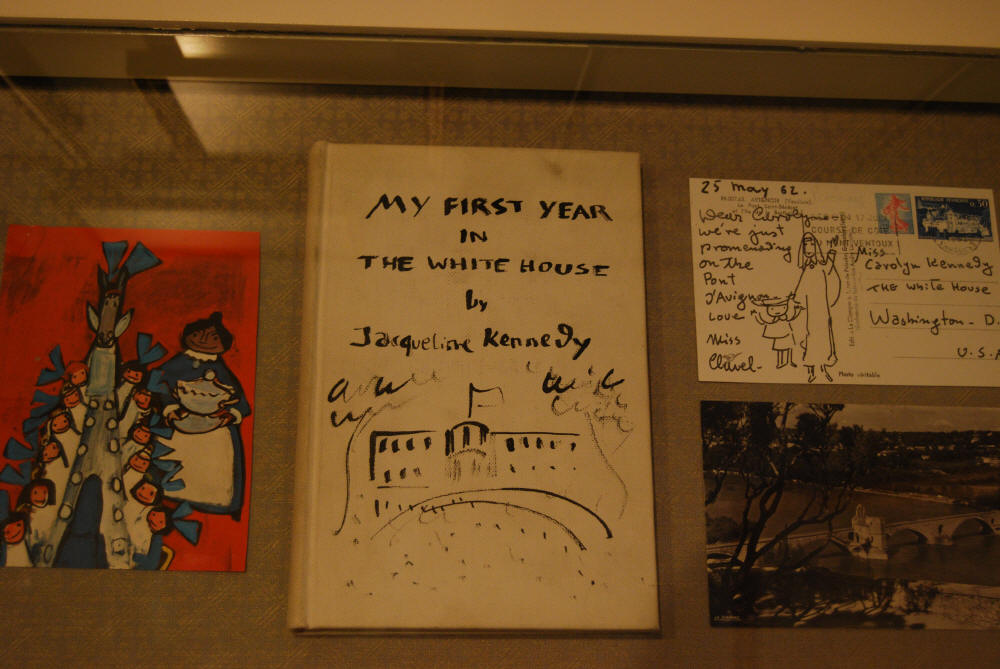 MY FIRST YEAR
IN
THE WHITE HOUSE
by
Jacqueline Kennedy
25 May 62.
Dear Carolyn
we're just
promenading
on the
Pont
d'Avignon
Love
Miss
Clavel-
COURSE DE CÔTE
DU MONT VENTOUX
Miss
Carolyn Kennedy
THE White House
Washington - D.
U.S.A
Photo véritable
0,30